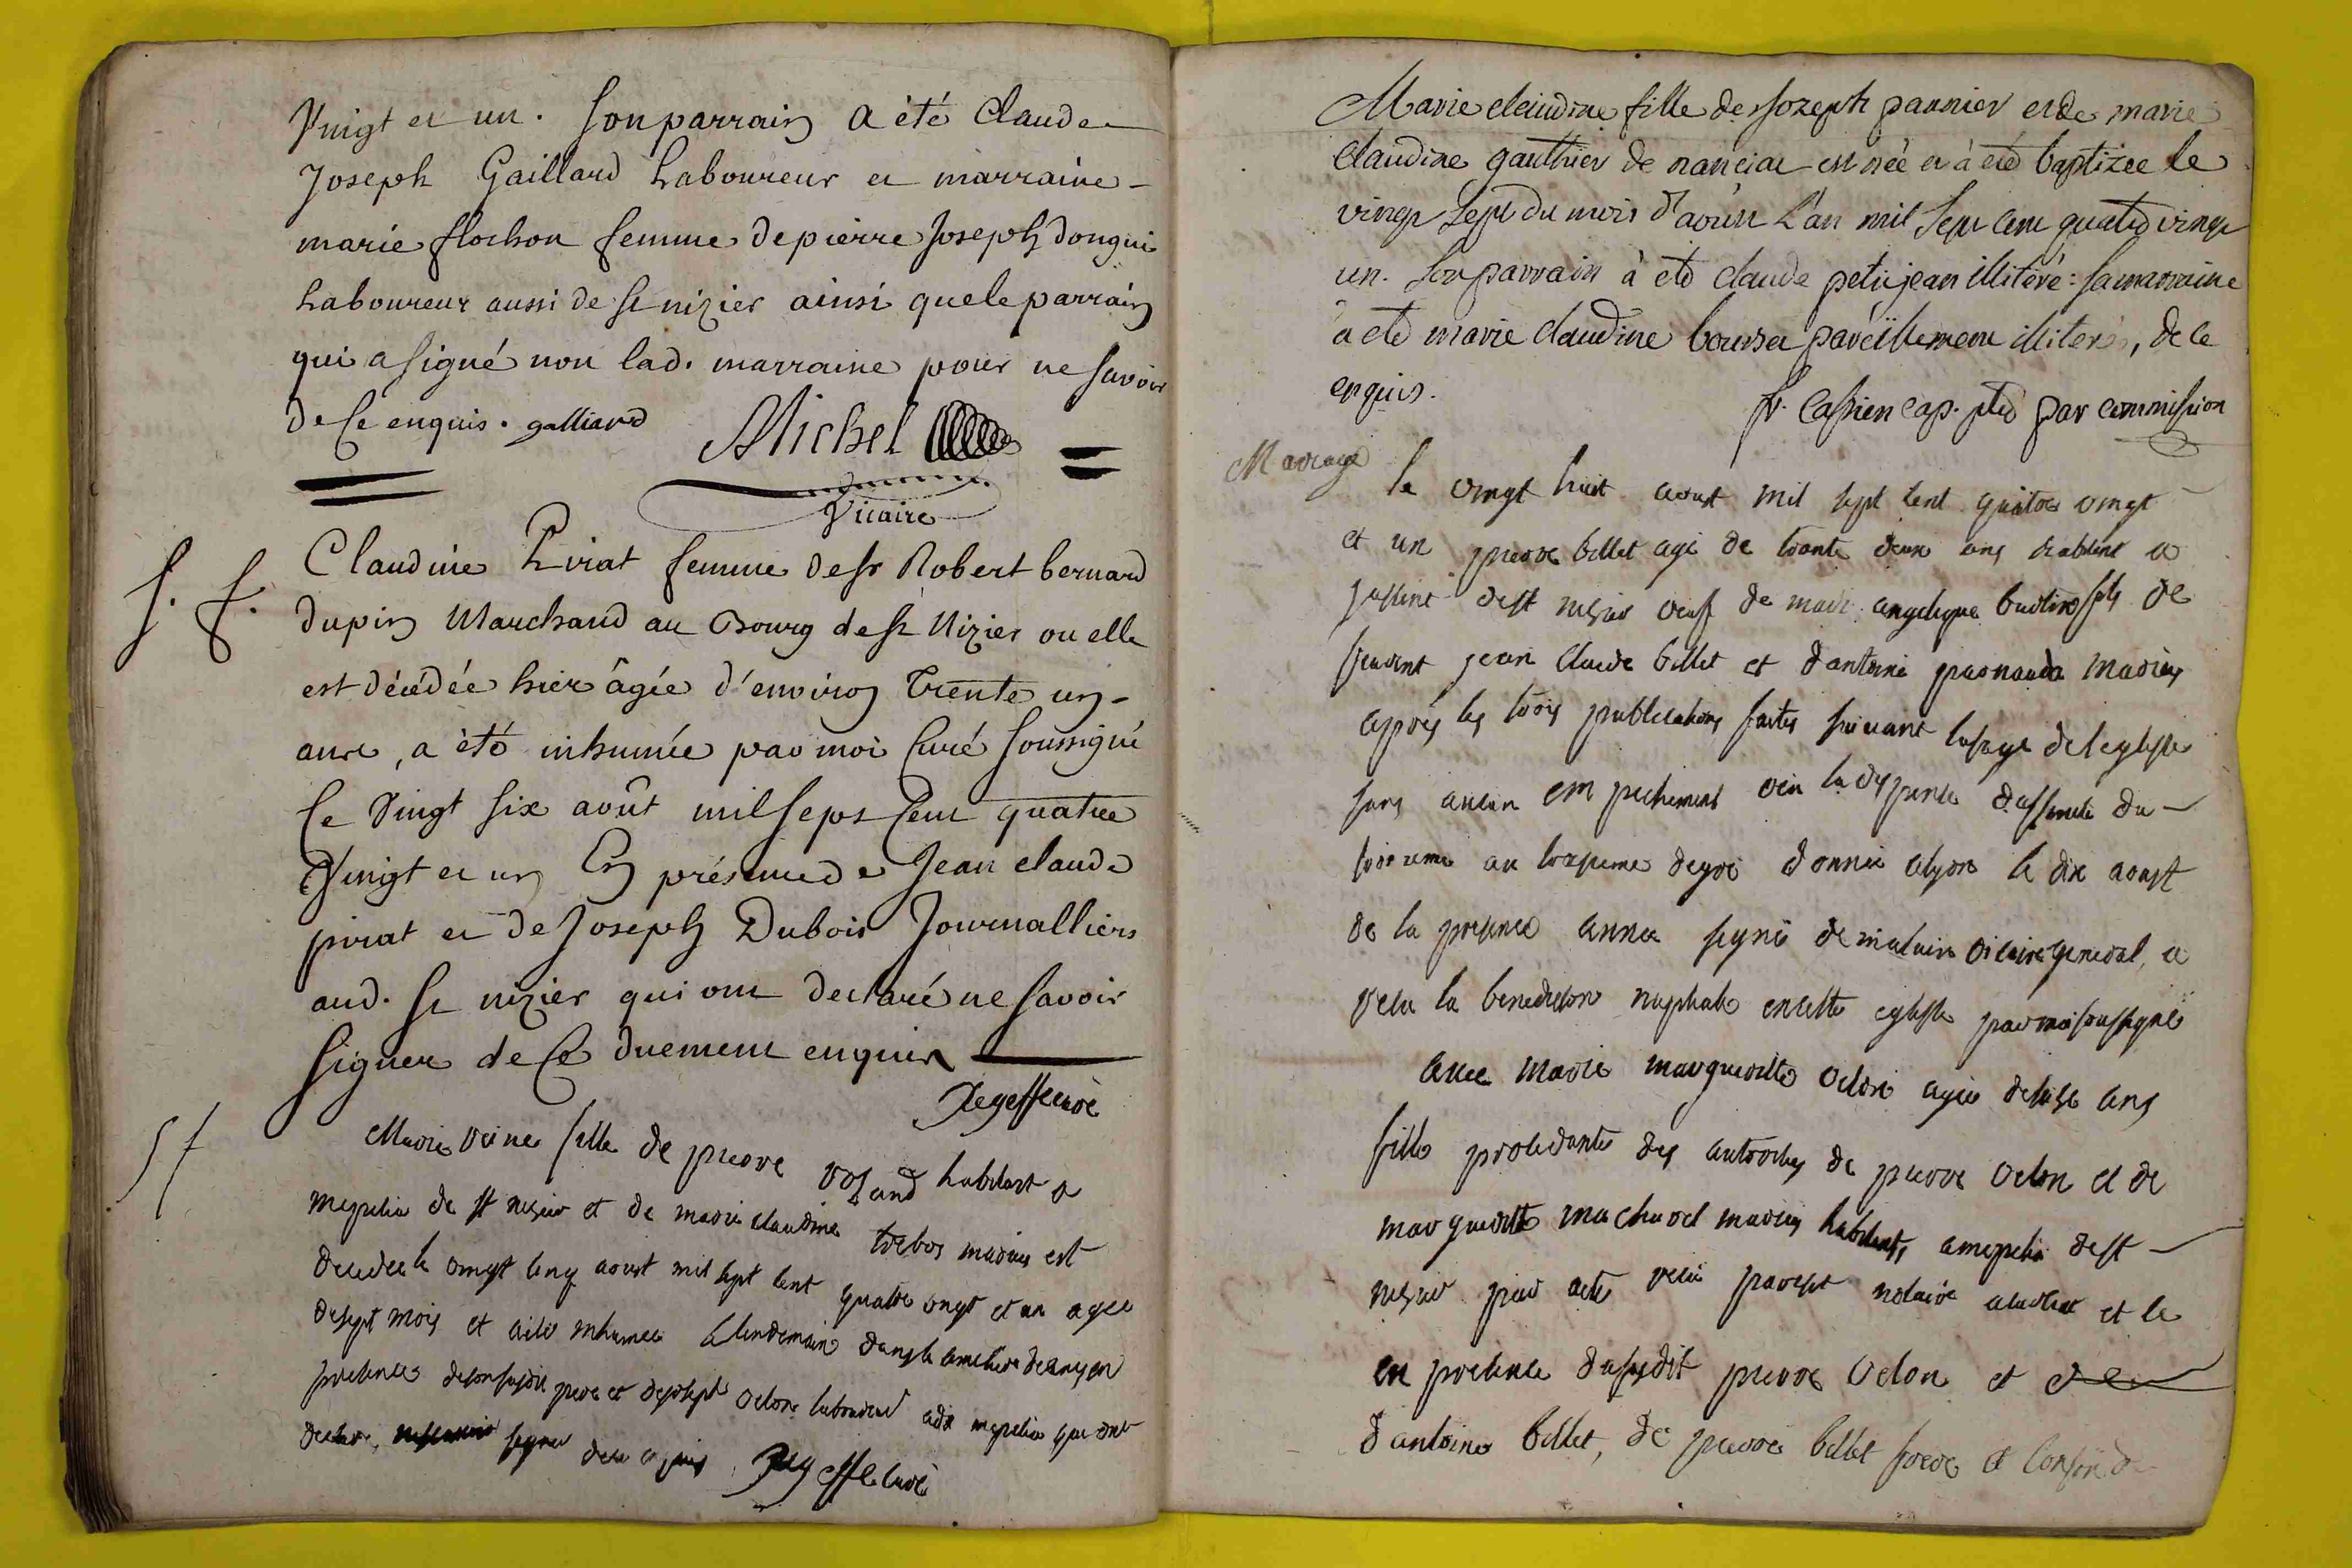 Vingt et un. Son parrain a été Claude
Joseph Gaillard Laboureur et marraine -
marie flochon femme de pierre Joseph dongui
Laboureur aussi de st nizier ainsi que le parrain
qui a signé non lad. marraine pour ne savoir
de ce enquis. galliard Michel
Vicaire
S. f.
Claudine Pirat femme de sr Robert bernard
dupin Marchand au Bourg de st Nizier ou elle
est décédée hier âgée d'environ trente un -
ans, a été inhumée par moi Curé soussigné
Ce Vingt six août mil sept Cent quatre
Vingt et un En présence de Jean claude
pirat et de Joseph Dubois Journalliers
aud. st nizier qui ont declaré ne savoir
signer de ce duement enquis
Sf
Marie reine fille de pierre habitant a
de st nisier et de marie claudine mariés est
decedee le vingt cinq aoust mil sept cent quatre vingt et un agee
de sept mois et inhumee le lendemain dans le
presences de son susdit pere et de joseph velon laboureur qui ont
declare signer de ce
Marie claudine fille de Joseph pannier et de marie
Claudine gauthier de nanciat est née et à été baptizée le
vingt sept du mois d'aoùt L'an mil sept cent quatre vingt
un. Son parrain à été claude petitjean illitéré: sa marraine
à été marie claudine pareillement illiterée, de ce
enquis.
fr. Cassien cap. ptre par commission
Mariage
le vingt huit aoust mil sept cent quatre vingt
et un pierre billet agé de trante deux ans habitant a
dest nisier veuf de marie angelique fils de
jean claude billet et d'antoine mariés
après les trois publications faites suivant lusage de leglise
sans aucun empechement veu la dispence du
au troisieme degré donnée a lyon le dix aoust
de la presence annee signé vicaire general, a
recu la benediction nuptiale en cette eglise par moi soussigné
avec marie marguerite velon agée de seize ans
fille procedante des autorites de pierre velon et de
marguerite machurel mariés habitants dest
nisier par acte recu notaire et ce
en presence du susdit pierre velon et de
d'antoine billet, de pierre billet frere